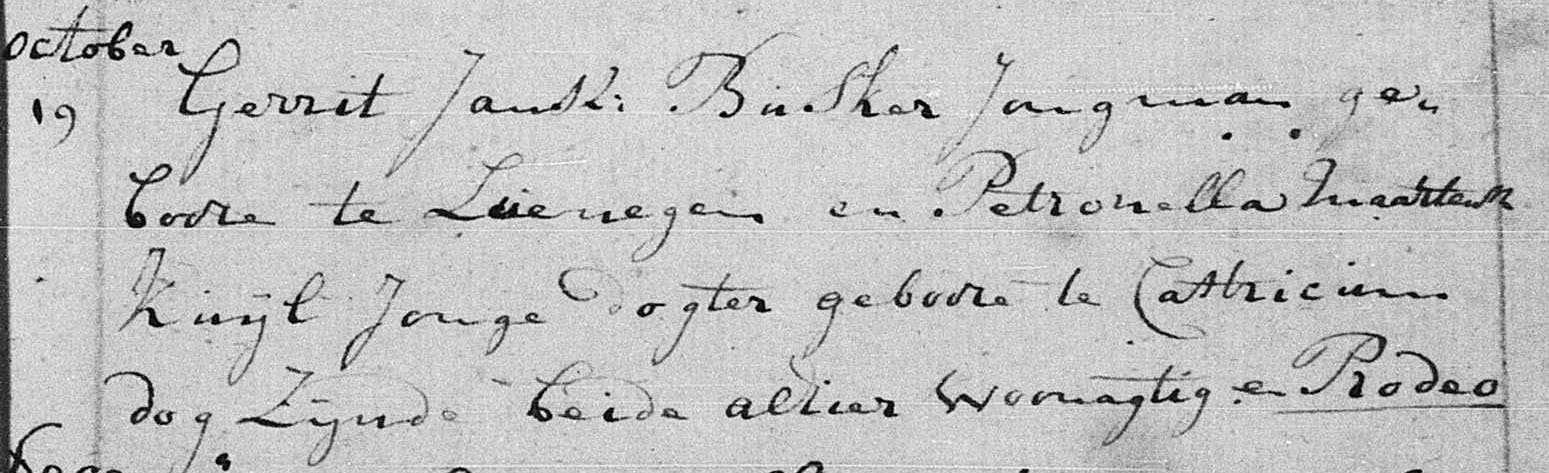 October
19 Gerrit Jansz: Busker Jongman ge„
boore te Luenegen en Petronella Maartensz
Kuijl Jonge dogter geboore te Castricum
dog Zijnde beide alhier Woonagtig en Prodeo